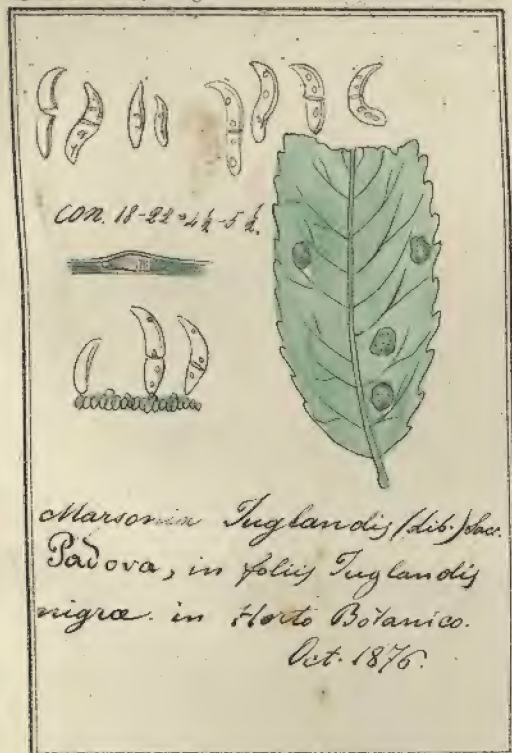 con. 18-22 = 4½-5½.
Marsonia Juglandis (Lib.) Sacc.
Padova, in foliis Juglandis
nigræ. in Horto Botanico.
Oct. 1876.